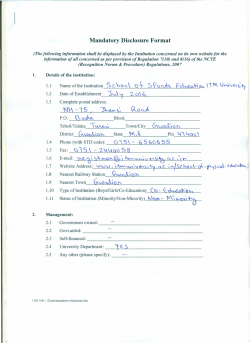 Mandatory Disclosure Format
(The following information shall be displayed by the Institution concerned on its own website for the
information of all concerned as per provision of Regulation 7(14)i and 8(14)i of the NCTE
(Recognition Norms & Procedure) Regulations, 2007
1. Details of the institution:
1.1 Name of the Institution School of Sports Education ITM University
1.2 Date of Establishment July 2016
1.3 Complete postal address:
NH-75, Jhansi Road
P.O. Block
Tehsil/Taluka Town/City Gwalior
District Gwalior State M.P. Pin 474001
1.4 Phone (with STD code): 0751-
1.5 Fax: 0751-2440058
1.6 E-mail: registrar@itmuniversity.ac.in
1.7 Website Address: www.itmuniversity.ac.in/school-of-physical-education
1.8 Nearest Railway Station: Gwalior
1.9 Nearest Town Gwalior
1.10 Type of Institution (Boys/Girls/Co-Education) Co-Education
1.11 Status of Institution (Minority/Non-Minority) Non-Minority
2. Management:
2.1 Government owned: —
2.2 Govt.aided: —
2.3 Self-financed: —
2.4 University Department: Yes
2.5 Any other (please specify): —